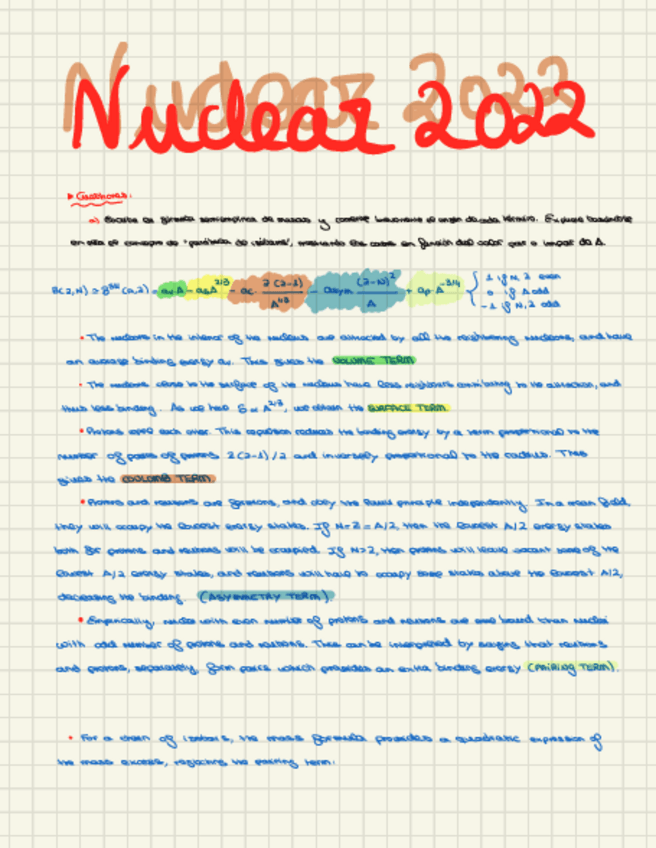 Nuclear 2022
▸ Cuestiones:
a) Escribe la fórmula semiempírica de masas y comente brevemente el origen de cada término. Explique basándose
en ella el concepto de "parábola de isóbaros", mostrando los casos en función del valor par o impar de A.
B(Z,N) ≃ B(A,Z) = aᵥA − aₛA^2/3 − ac Z(Z-1)/A^1/3 − aasym (Z-N)²/A + aₚ A^-3/4 { 1 if N,Z even
0 if A odd
-1 if N,Z odd
• The nucleons in the interior of the nucleus are attracted by all the neighboring nucleons, and have
an average binding energy aᵥ. This gives the VOLUME TERM
• The nucleons close to the surface of the nucleus have less neighbors contributing to the attraction, and
thus less binding. As we had S ∝ A^2/3, we obtain the SURFACE TERM
• Protons repel each other. This repulsion reduces the binding energy by a term proportional to the
number of pairs of protons Z(Z-1)/2 and inversely proportional to the radius. This
gives the COULOMB TERM.
• Protons and neutrons are fermions, and obey the Pauli principle independently. In a mean field,
they will occupy the lowest energy states. If N=Z=A/2, then the lowest A/2 energy states
both for protons and neutrons will be occupied. If N>Z, then protons will leave vacant some of the
lowest A/2 energy states, and neutrons will have to occupy some states above the lowest A/2,
decreasing the binding. (ASYMMETRY TERM).
• Empirically, nuclei with even number of protons and neutrons are more bound than nuclei
with odd number of protons and neutrons. This can be interpreted by saying that neutrons
and protons, separately, form pairs which provides an extra binding energy (PAIRING TERM).
• For a chain of isobars, the mass formula provides a quadratic expression of
the mass excess, neglecting the pairing term.